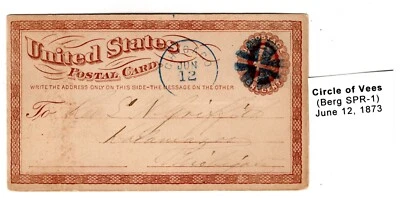 United States
POSTAL CARD
CHICAGO
JUN
12
WRITE THE ADDRESS ONLY ON THIS SIDE—THE MESSAGE ON THE OTHER
To
Circle of Vees
(Berg SPR-1)
June 12, 1873